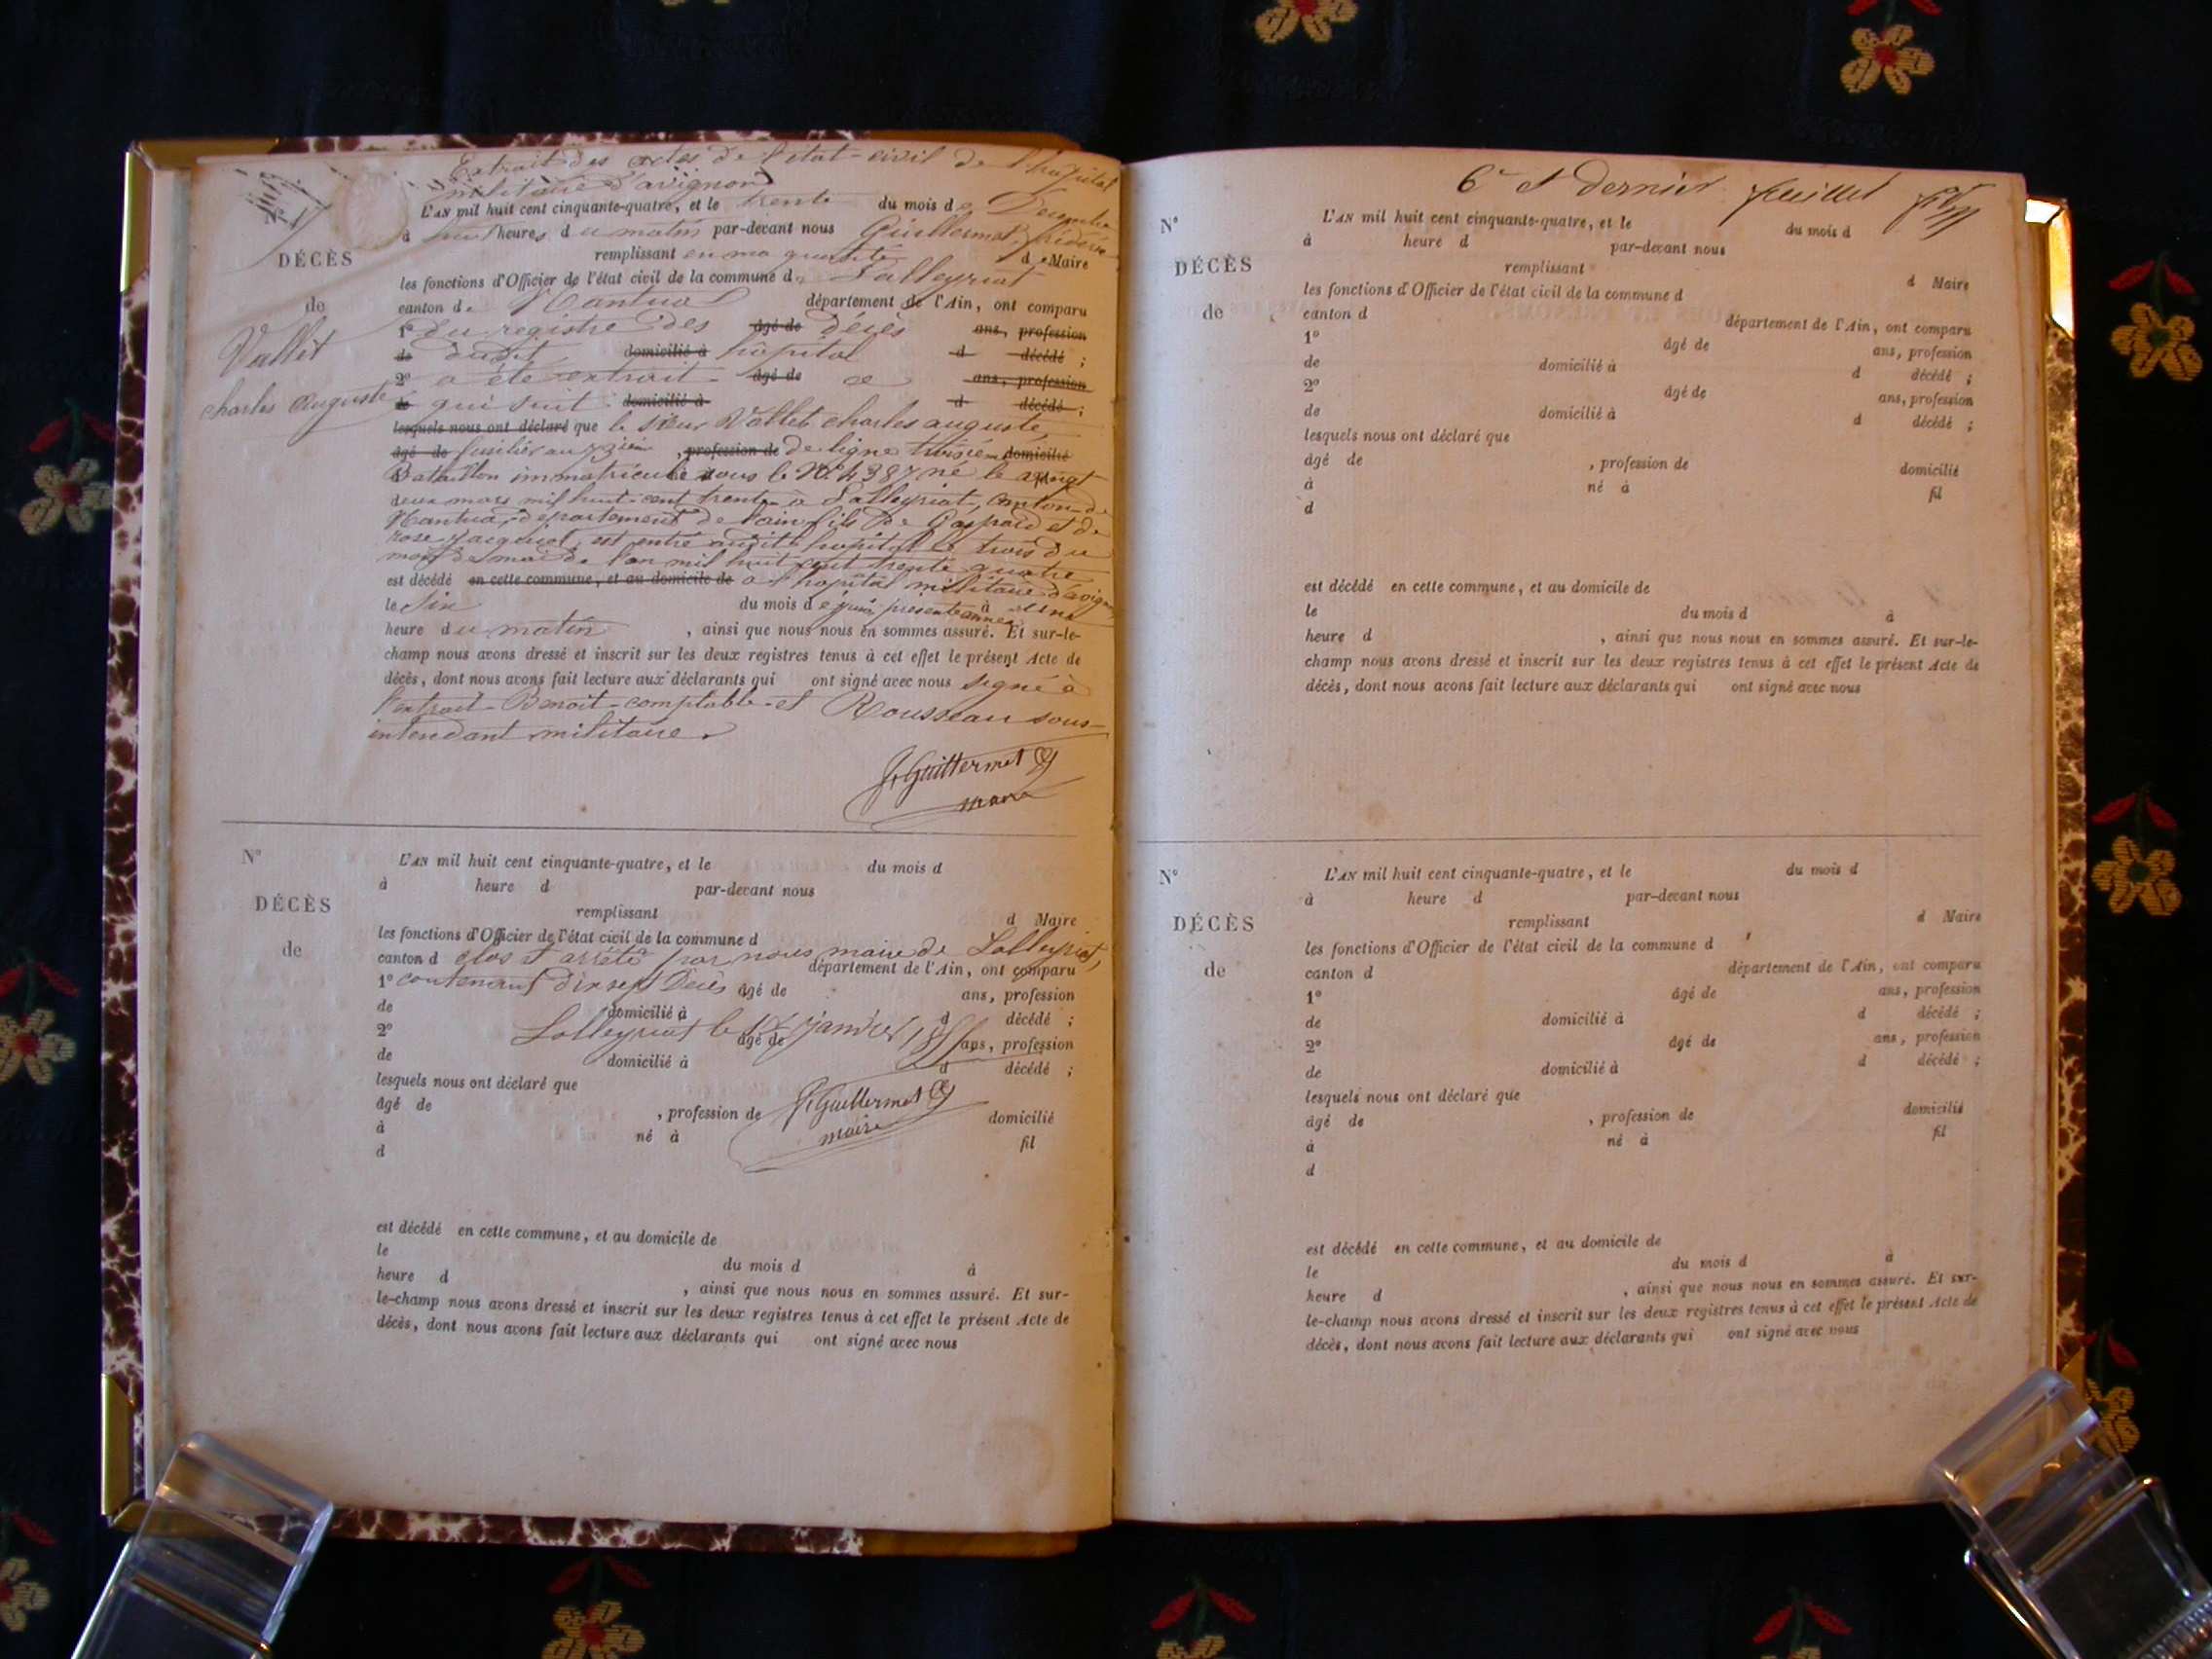 Extrait des actes de l'état-civil de l'hopital
militaire d'avignon
L'AN mil huit cent cinquante-quatre, et le trente du mois de Decembre
à huit heures du matin par-devant nous Guillermet, frédéric
remplissant en ma qualité d e Maire
DÉCÈS
les fonctions d'Officier de l'état civil de la commune d Lalleyriat
de
canton de Nantua département de l'Ain, ont comparu
1° Du registre des âgé de décès ans, profession
Vallet
de dudit domicilié à hôpital d décédé ;
2° a été extrait âgé de ce ans, profession
charles auguste
de qui suit : domicilié à d décédé ;
lesquels nous ont déclaré que le sieur Vallet charles auguste
âgé de fusilier au 73ieme , profession de de ligne troisiem domicilié
Bataillon immatriculé sous le N° 4387 né le vingt
deux mars mil huit-cent trente à Lalleyriat, canton de
Nantua, département de l'ain fils De Gaspard et de
rose jacquiot, est entré audit hopital le trois du
mois de mai de l'an mil huit cent trente quatre
est décédé en cette commune, et au domicile de a l'hopital militaire d'avignon
le Six du mois de juin presente année à une
heure du matin , ainsi que nous nous en sommes assuré. Et sur-le-
champ nous avons dressé et inscrit sur les deux registres tenus à cet effet le présent Acte de
décès, dont nous avons fait lecture aux déclarants qui ont signé avec nous signé à
l'extrait Benoit comptable et Rousseau sous-
intendant militaire.
f. Guillermet
maire
N°
L'AN mil huit cent cinquante-quatre, et le du mois d
à heure d par-devant nous
DÉCÈS
remplissant d Maire
les fonctions d'Officier de l'état civil de la commune d
de
canton d clos et arrêté par nous maire de Lalleyriat,
département de l'Ain, ont comparu
1° contenant dix sept Décès âgé de ans, profession
de domicilié à d décédé ;
2° Lalleyriat le janvier 1855 âgé de ans, profession
de domicilié à d décédé ;
lesquels nous ont déclaré que
âgé de , profession de f. Guillermet domicilié
à né à maire fil
d
est décédé en cette commune, et au domicile de
le du mois d à
heure d , ainsi que nous nous en sommes assuré. Et sur-
le-champ nous avons dressé et inscrit sur les deux registres tenus à cet effet le présent Acte de
décès, dont nous avons fait lecture aux déclarants qui ont signé avec nous
6e et dernier feuillet
N°
L'AN mil huit cent cinquante-quatre, et le du mois d
à heure d par-devant nous
DÉCÈS
remplissant d Maire
les fonctions d'Officier de l'état civil de la commune d
de
canton d département de l'Ain, ont comparu
1° âgé de ans, profession
de domicilié à d décédé ;
2° âgé de ans, profession
de domicilié à d décédé ;
lesquels nous ont déclaré que
âgé de , profession de domicilié
à né à fil
d
est décédé en cette commune, et au domicile de
le du mois d à
heure d , ainsi que nous nous en sommes assuré. Et sur-le-
champ nous avons dressé et inscrit sur les deux registres tenus à cet effet le présent Acte de
décès, dont nous avons fait lecture aux déclarants qui ont signé avec nous
N°
L'AN mil huit cent cinquante-quatre, et le du mois d
à heure d par-devant nous
DÉCÈS
remplissant d Maire
les fonctions d'Officier de l'état civil de la commune d
de
canton d département de l'Ain, ont comparu
1° âgé de ans, profession
de domicilié à d décédé ;
2° âgé de ans, profession
de domicilié à d décédé ;
lesquels nous ont déclaré que
âgé de , profession de domicilié
à né à fil
d
est décédé en cette commune, et au domicile de
le du mois d à
heure d , ainsi que nous nous en sommes assuré. Et sur-
le-champ nous avons dressé et inscrit sur les deux registres tenus à cet effet le présent Acte de
décès, dont nous avons fait lecture aux déclarants qui ont signé avec nous